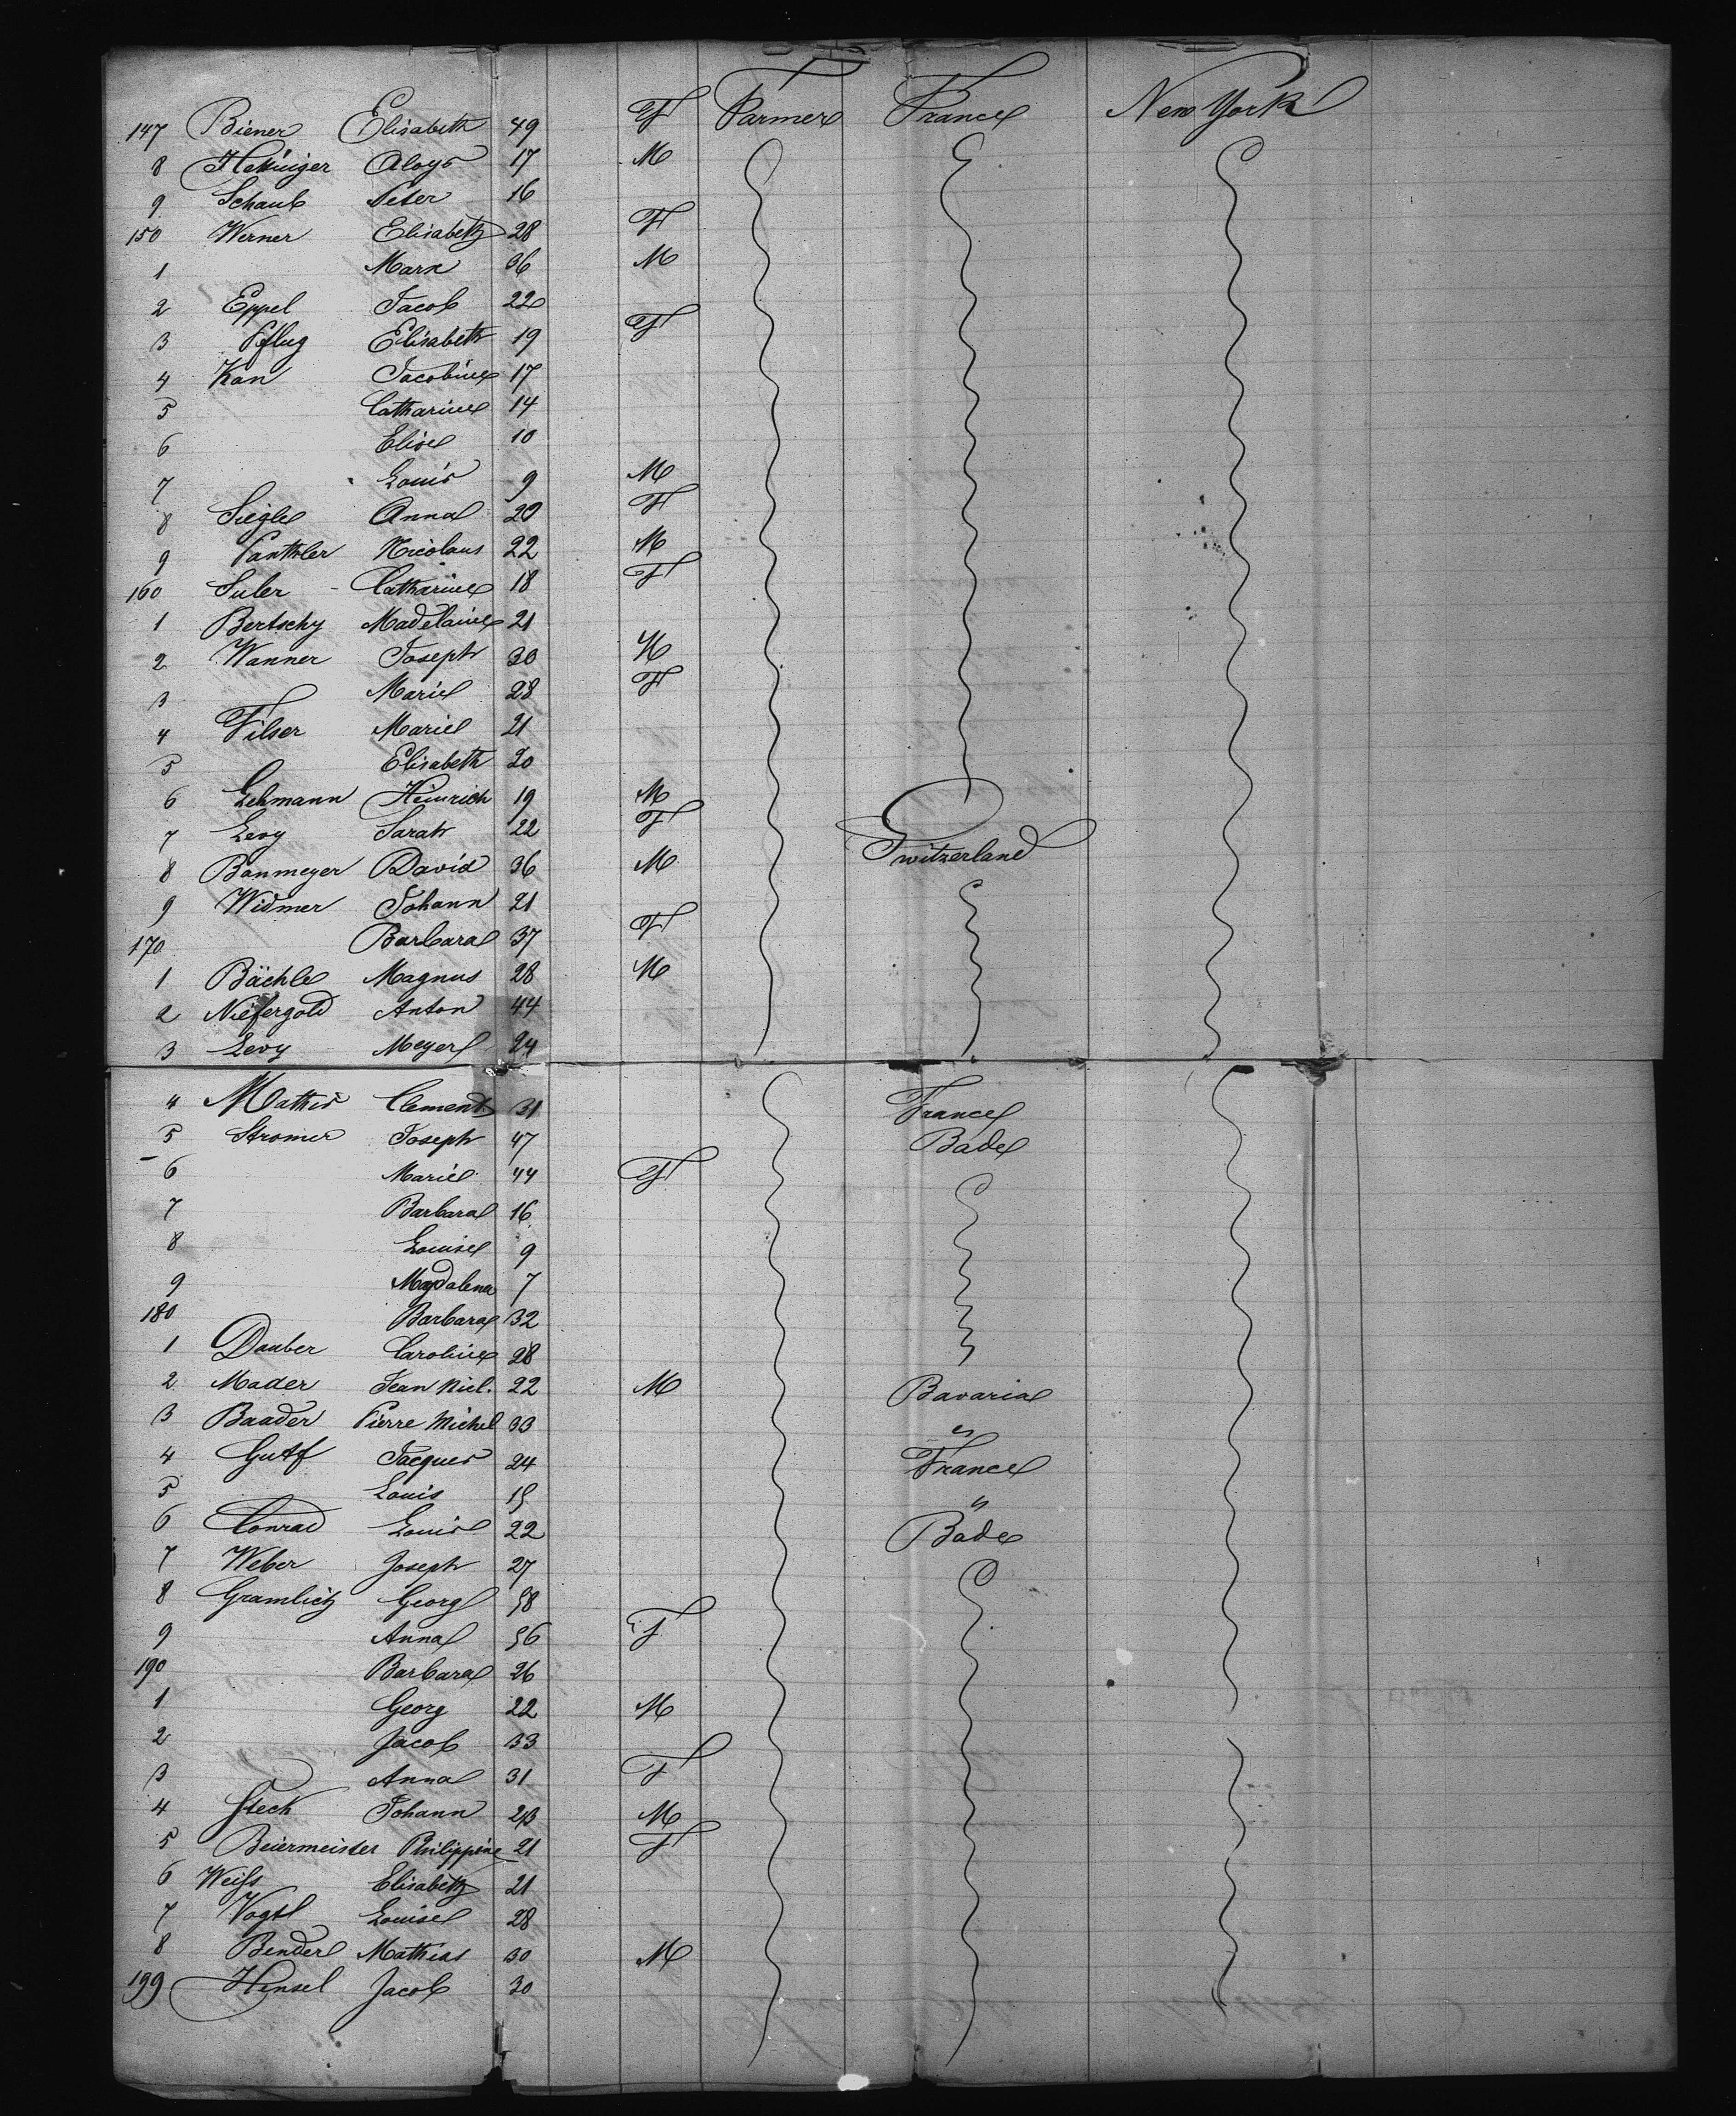 147 Biener Elisabeth 49 F Farmer France New York
8 Hettinger Aloys 17 M
9 Schaub Peter 16
150 Werner Elisabeth 28 F
1 Marx 36 M
2 Eppel Jacob 22
3 Pflug Elisabeth 19 F
4 Kan Jacobine 17
5 Catharine 14
6 Elise 10
7 Louis 9 M
8 Siegle Anna 29 F
9 Panthler Nicolaus 22 M
160 Suler Catharine 18 F
1 Bertschy Madelaine 21
2 Wanner Joseph 30 M
3 Marie 28 F
4 Filser Marie 21
5 Elisabeth 20
6 Lehmann Heinrich 19 M
7 Levy Sarah 22 F
8 Bonmeyer David 36 M Switzerland
9 Widmer Johann 21
170 Barbara 37 F
1 Bächle Magnus 28 M
2 Niefergold Anton 44
3 Levy Meyer 24
4 Mathis Clement 31 France
5 Stromer Joseph 47 Bade
6 Marie 44 F
7 Barbara 16
8 Louise 9
9 Magdalena 7
180 Barbara 32
1 Dauber Caroline 28
2 Mader Jean Nicl. 22 M Bavaria
3 Baader Pierre Michel 33 "
4 Gutf Jacques 24 France
5 Louis 15 "
6 Conrad Louis 22 Bade
7 Weber Joseph 27
8 Gramlich Georg 58
9 Anna 56 F
190 Barbara 26
1 Georg 22 M
2 Jacob 33
3 Anna 31 F
4 Steck Johann 23 M
5 Beiermeister Philippine 21 F
6 Weiſs Elisabeth 21
7 Vogtl Louise 28
8 Bender Mathias 30 M
199 Hensel Jacob 30